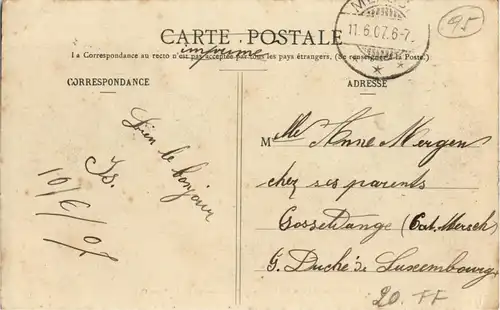 CARTE POSTALE
imprimé
La Correspondance au recto n'est pas acceptée par tous les pays étrangers. (Se renseigner à la Poste.)
CORRESPONDANCE
ADRESSE
11.6.07.6-7.
95
Bien le bonjour
Js.
10/6/07
Mlle Anne Mergen
chez ses parents
Gosseldange (Cat. Mersch)
G. Duché de Luxembourg
20. FF